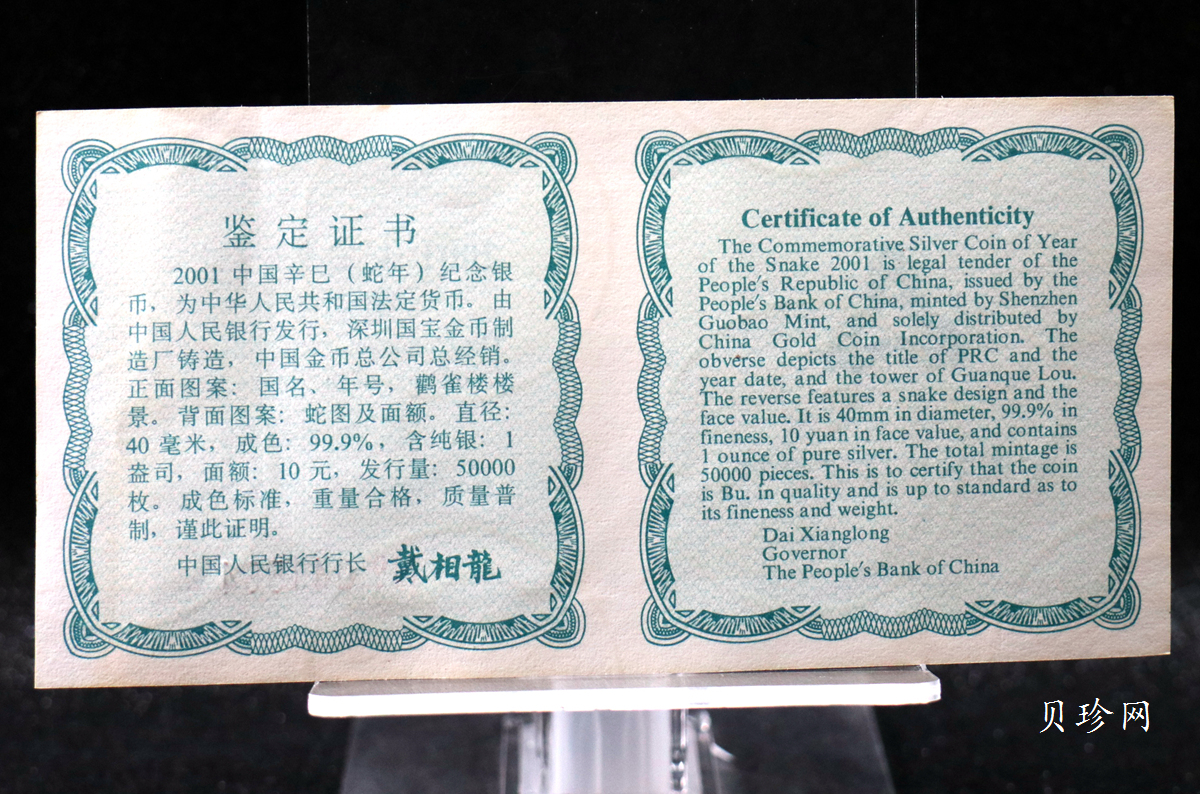 鉴定证书
2001 中国辛巳（蛇年）纪念银
币，为中华人民共和国法定货币。由
中国人民银行发行，深圳国宝金币制
造厂铸造，中国金币总公司总经销。
正面图案：国名、年号，鹳雀楼楼
景。背面图案：蛇图及面额。直径：
40 毫米，成色：99.9%，含纯银：1
盎司，面额：10 元，发行量：50000
枚。成色标准，重量合格，质量普
制，谨此证明。
中国人民银行行长 戴相龍
Certificate of Authenticity
The Commemorative Silver Coin of Year
of the Snake 2001 is legal tender of the
People's Republic of China, issued by the
People's Bank of China, minted by Shenzhen
Guobao Mint, and solely distributed by
China Gold Coin Incorporation. The
obverse depicts the title of PRC and the
year date, and the tower of Guanque Lou.
The reverse features a snake design and the
face value. It is 40mm in diameter, 99.9% in
fineness, 10 yuan in face value, and contains
1 ounce of pure silver. The total mintage is
50000 pieces. This is to certify that the coin
is Bu. in quality and is up to standard as to
its fineness and weight.
Dai Xianglong
Governor
The People's Bank of China
贝珍网